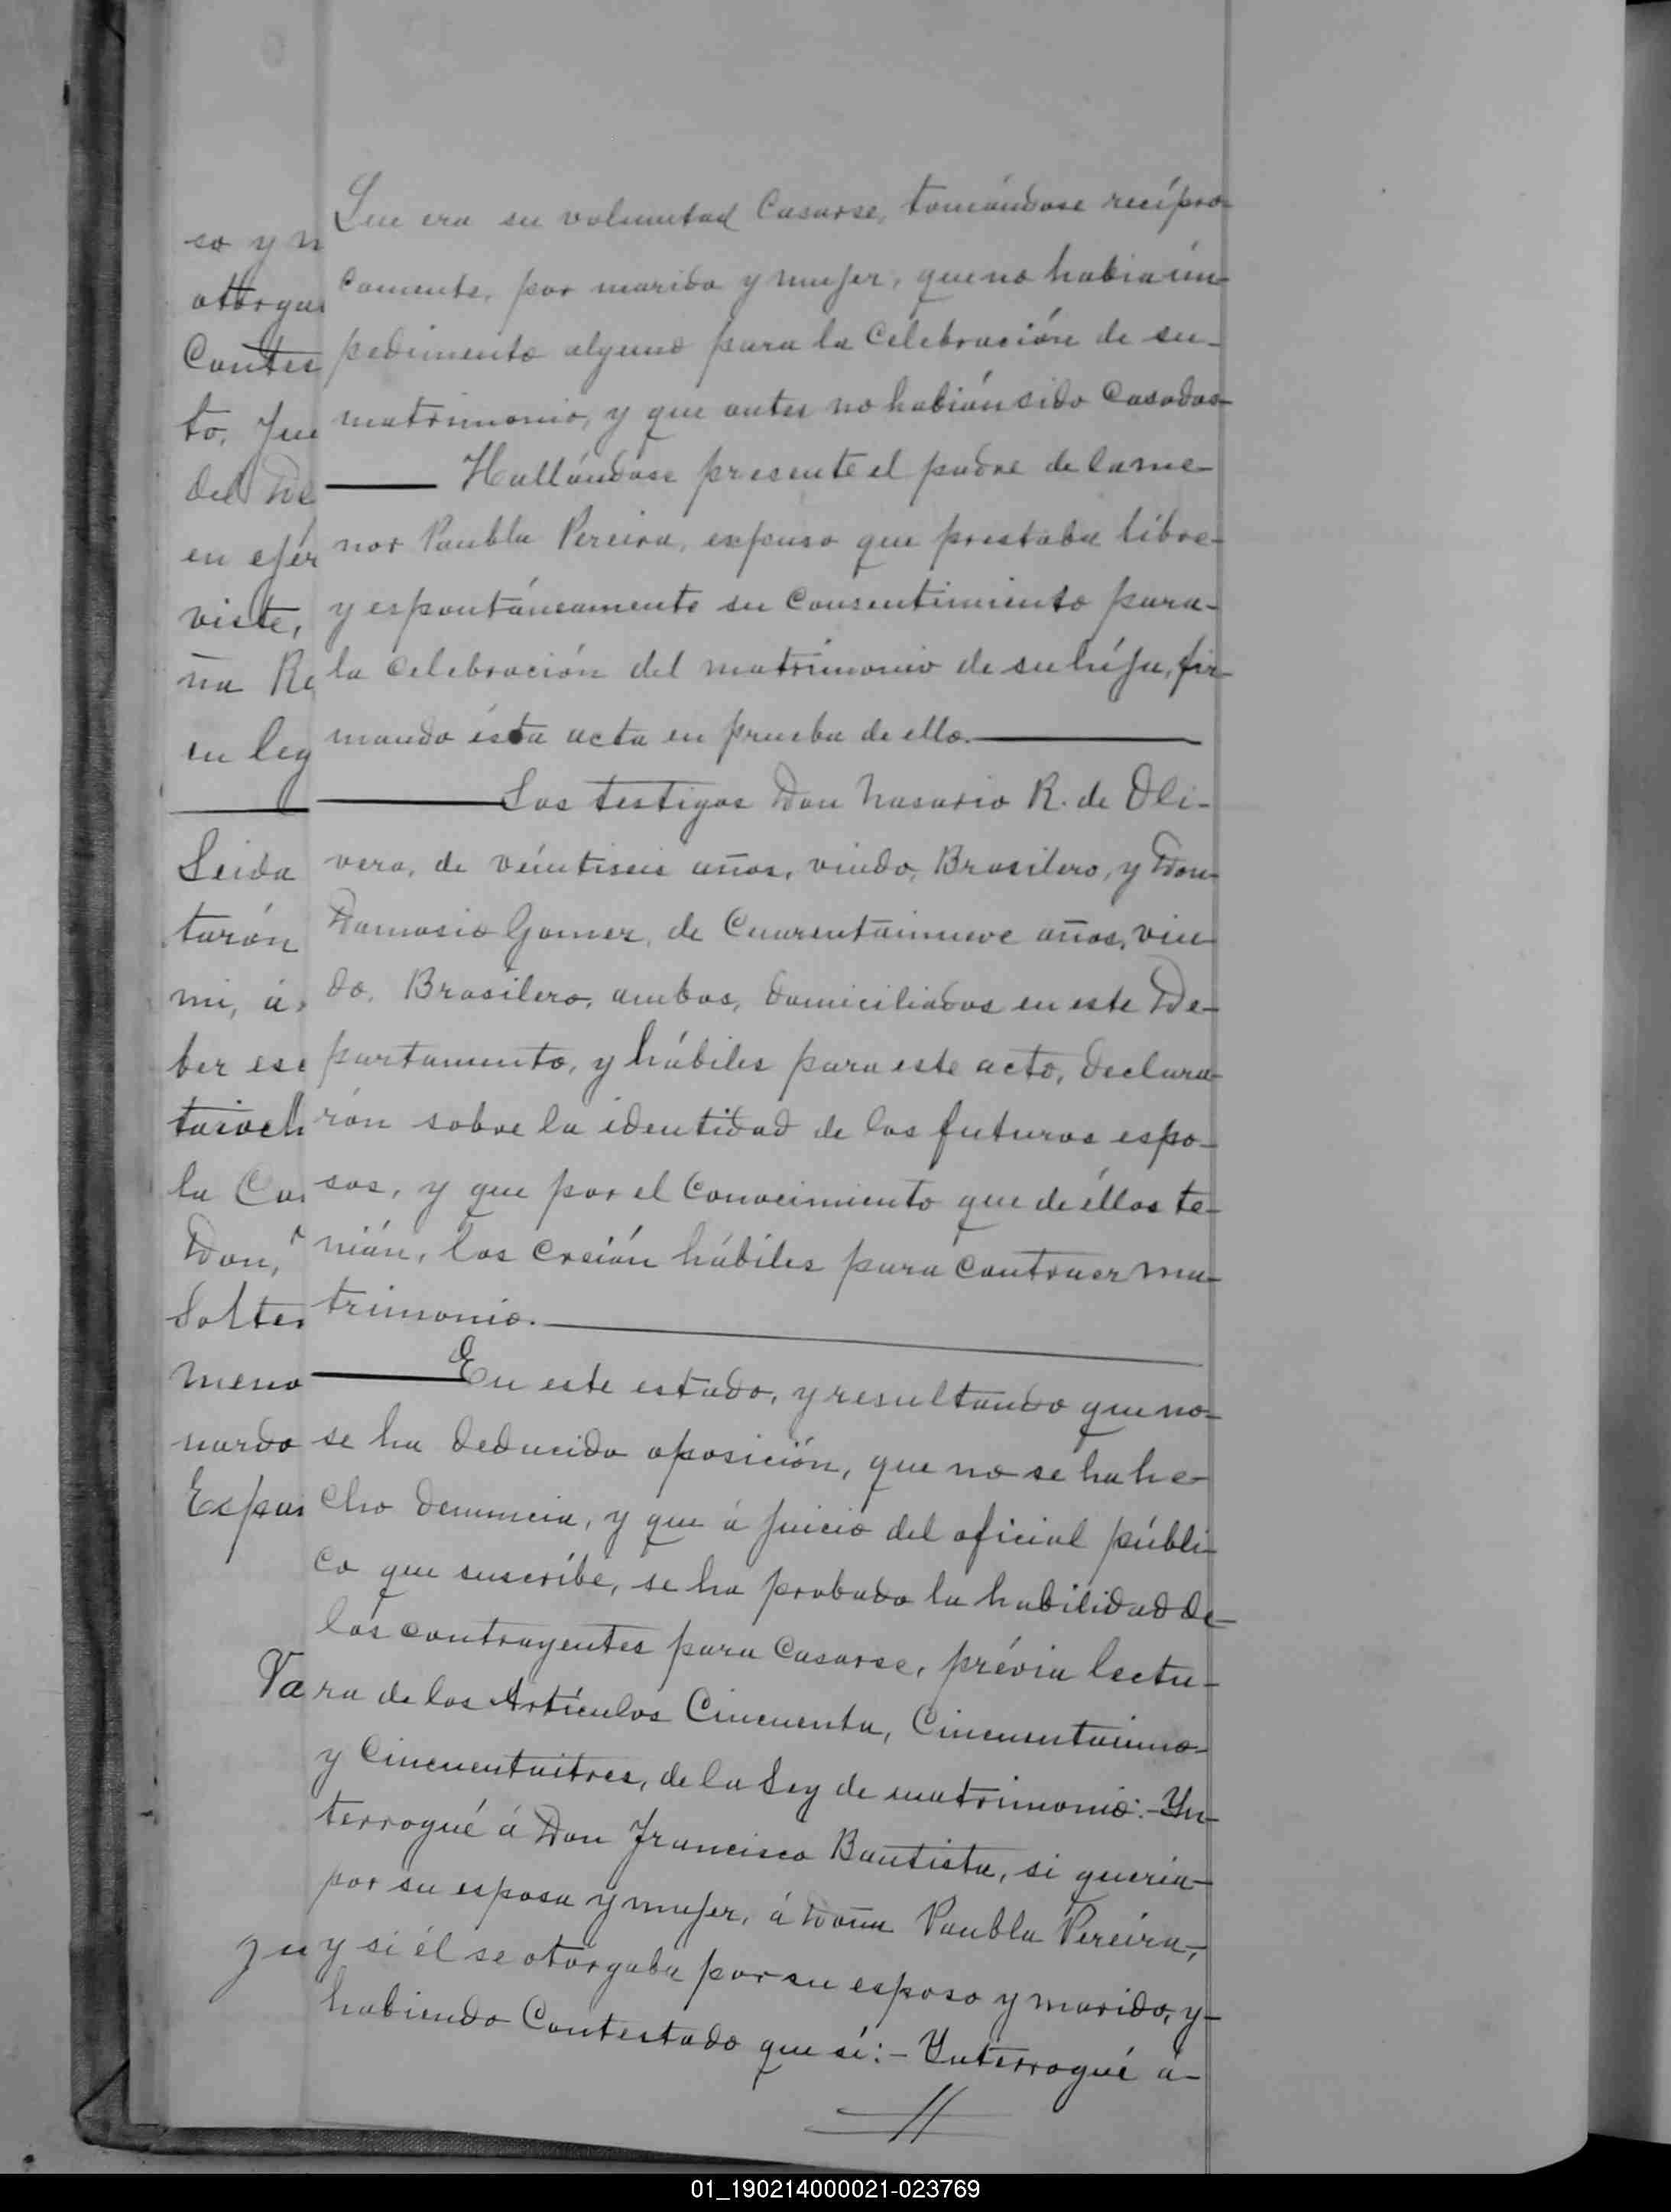 Que era su voluntad Casarse, tomándose recípro-
camente, por marido y mujer, que no habia im-
pedimento alguno para la Celebración de su-
matrimonio, y que antes no habián sido Casados-
Hallándose presente el padre de la me-
nor Paubla Pereira, expuso que prestaba libre-
y espontáneamente su Consentimiento para-
la Celebración del matrimonio de su hija, fir-
mando ésta acta en prueba de ello.
Los testigos Don Nasario R. de Oli-
vera, de veintiseis años, viudo, Brasilero, y Don-
Damasio Gomez, de Cuarentainueve años, viu-
do, Brasilero, ambos, domiciliados en este De-
partamento, y hábiles para este acto, declara-
rón sobre la identidad de los futuros espo-
sos, y que por el Conocimiento que de éllos te-
nián, los Creián hábiles para Contraer ma-
trimonio.
En este estado, y resultando que no-
se ha deducido oposición, que no se ha he-
cho denuncia, y que á juicio del oficial públi-
co que suscribe, se ha probado la habilidad de-
los contrayentes para Casarse, prévia lectu-
ra de los Artículos Cincuenta, Cincuentaiuno-
y Cincuentaitres, de la Ley de matrimonio:-Yn-
terrogué á Don Francisco Bautista, si queria-
por su esposa y mujer, á Doña Paubla Pereira,-
y si él se otorgaba por su esposo y marido, y-
habiendo Contestado que sí:- Ynterrogué á-
so y
otorga
Contes
to,
del De
en ejér
viste,
ña
en leg
Leida
tarón
mi, á
ber es
la
Don,
Solte
meno
nardo
Va
01_190214000021-023769